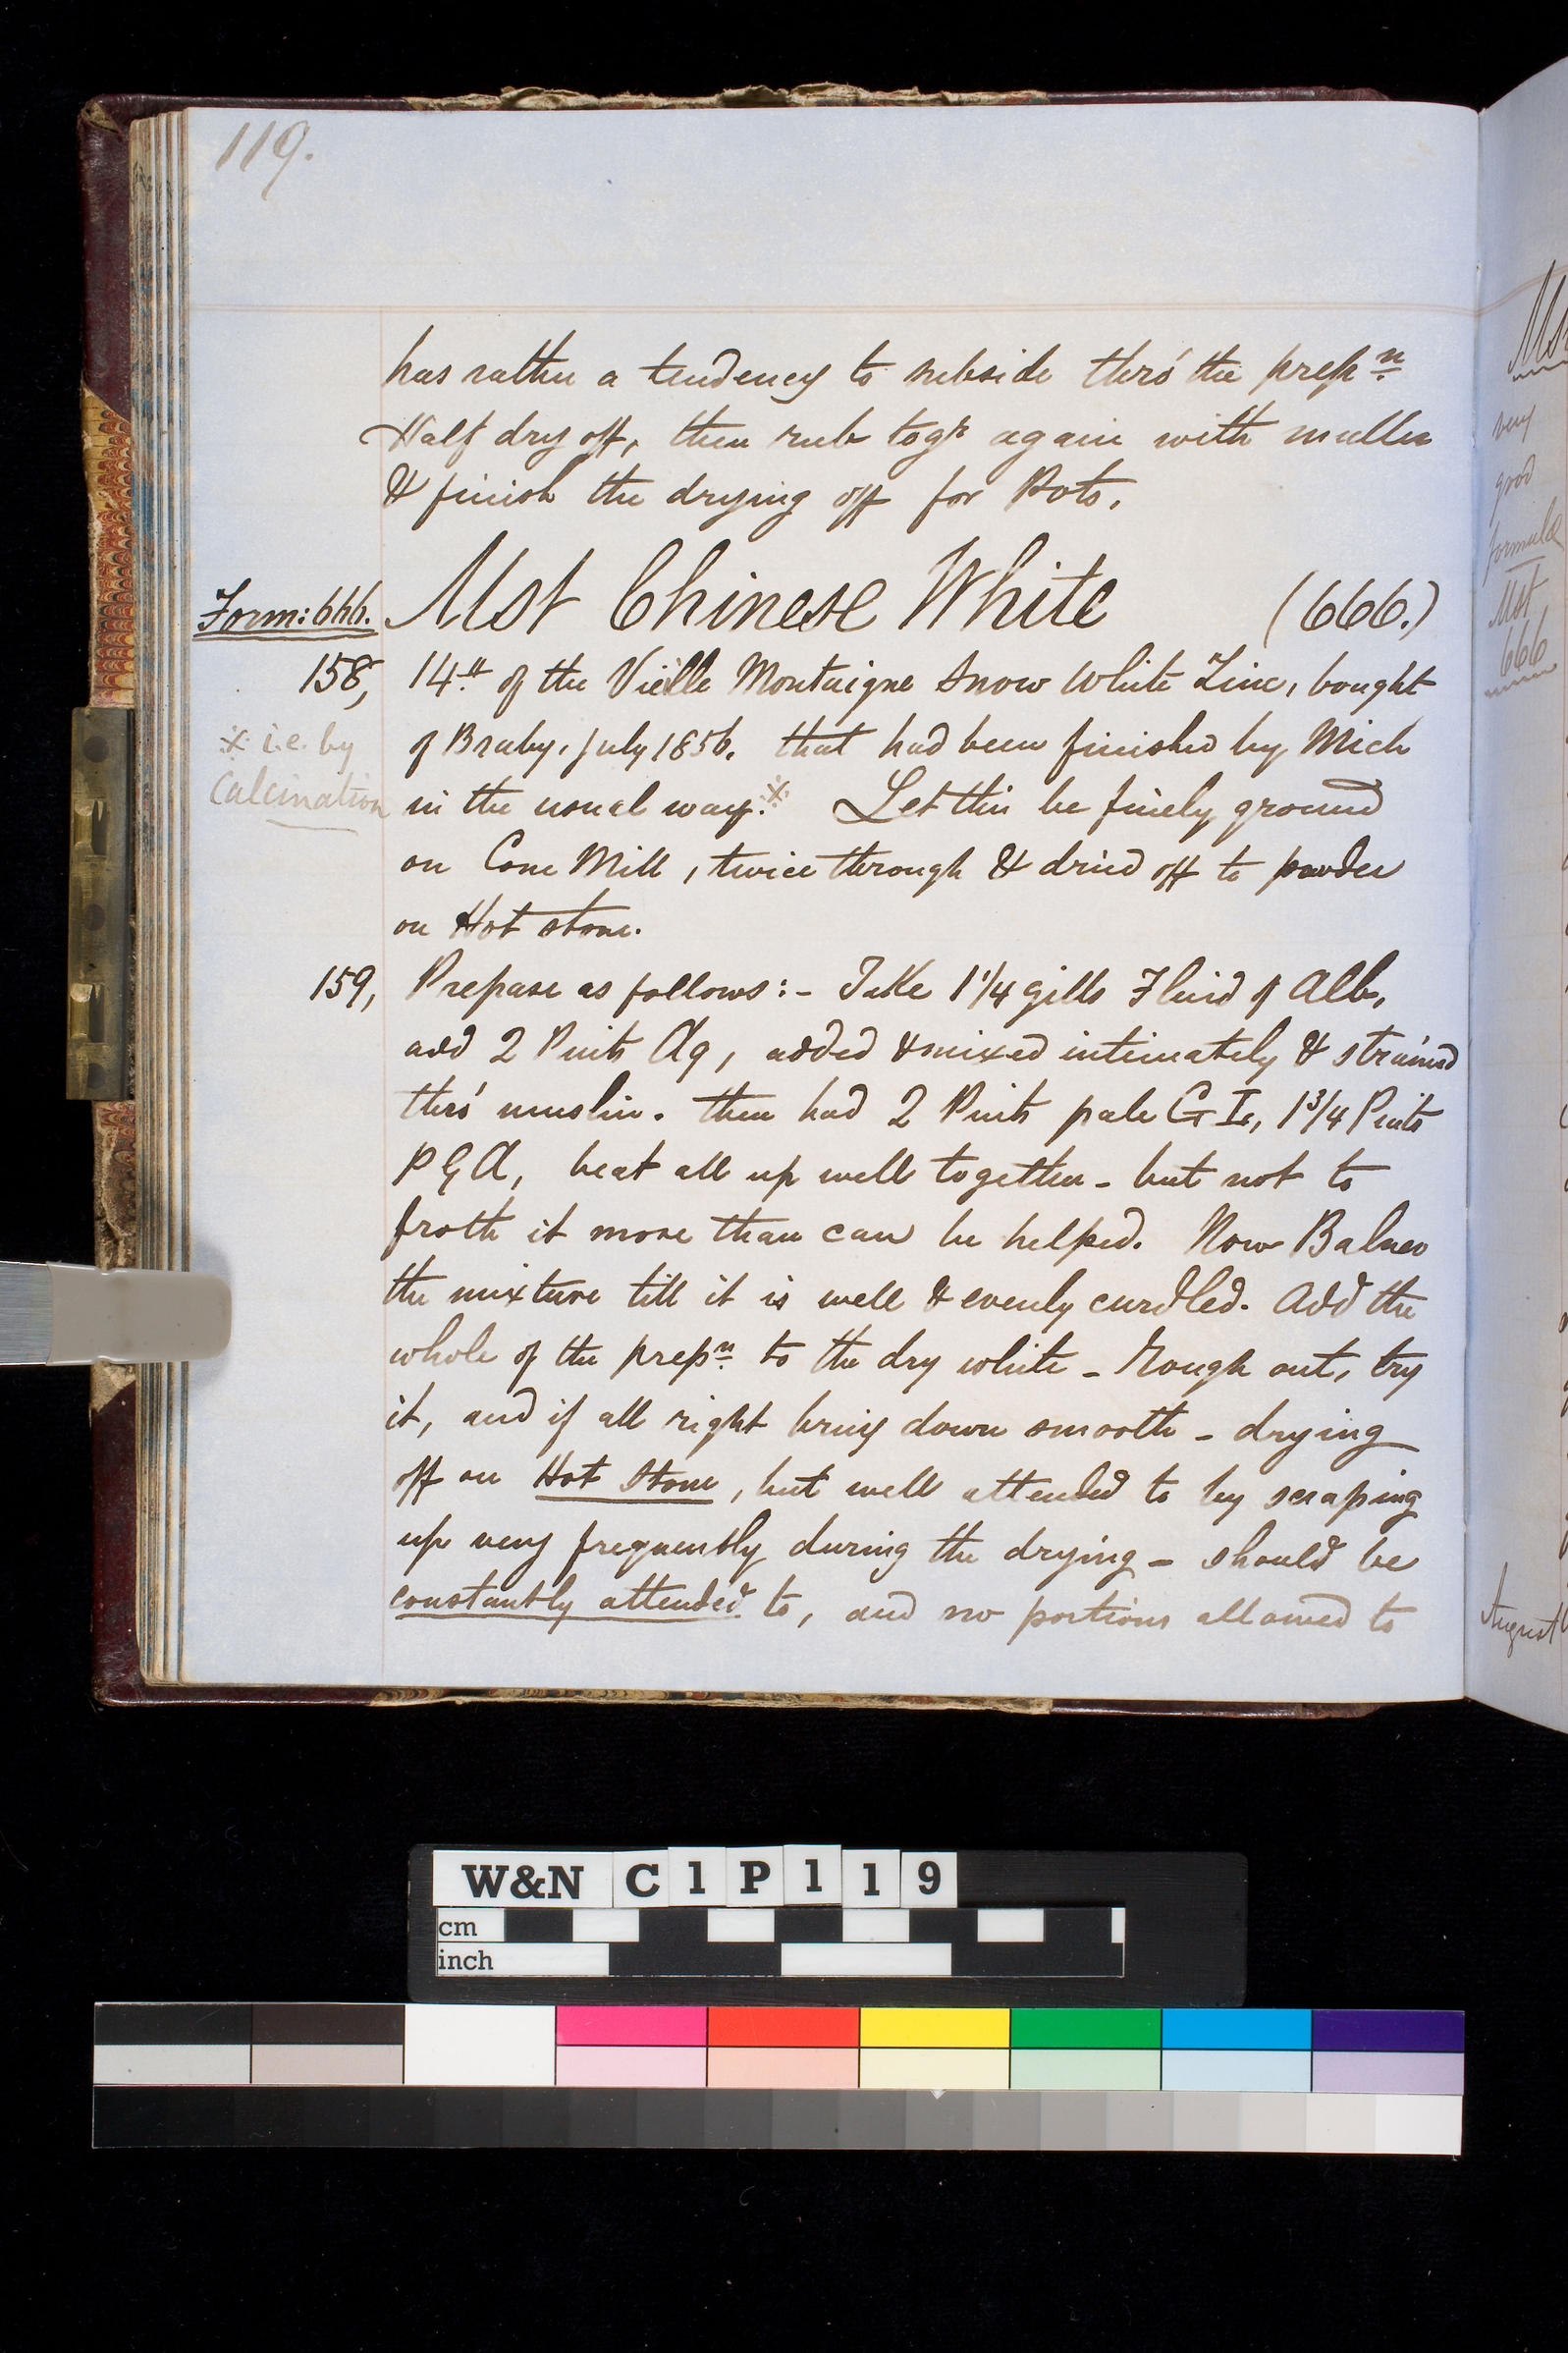 119.
has rather a tendency to subside thro' the prepn.
Half dry off, then rub togr again with muller
& finish the drying off for Pots.
Form: 666. Mst Chinese White (666.)
158, 14 lb of the Vielle Montaigne Snow White Zinc, bought
of Braby. July 1856. that had been finished by Mich
※ i.e. by
Calcination
in the usual way.※ Let this be finely ground
on Cone Mill, twice through & dried off to powder
on Hot stone.
159, Prepare as follows:- Take 1 1/4 gills Fluid of Alb,
add 2 Pints Aq, added & mixed intimately & strained
thro' muslin. then had 2 Pints pale G I, 1 3/4 Pints
P G A, beat all up well together - but not to
froth it more than can be helped. Now Balneo
the mixture till it is well & evenly curdled. Add the
whole of the prepn. to the dry white - Rough out, try
it, and if all right bring down smooth - drying
off on Hot Stone, but well attended to by scraping
up very frequently during the drying - should be
constantly attended to, and no portions allowed to
very
good
formula
Mst
666
August
W&N C1P119
cm
inch